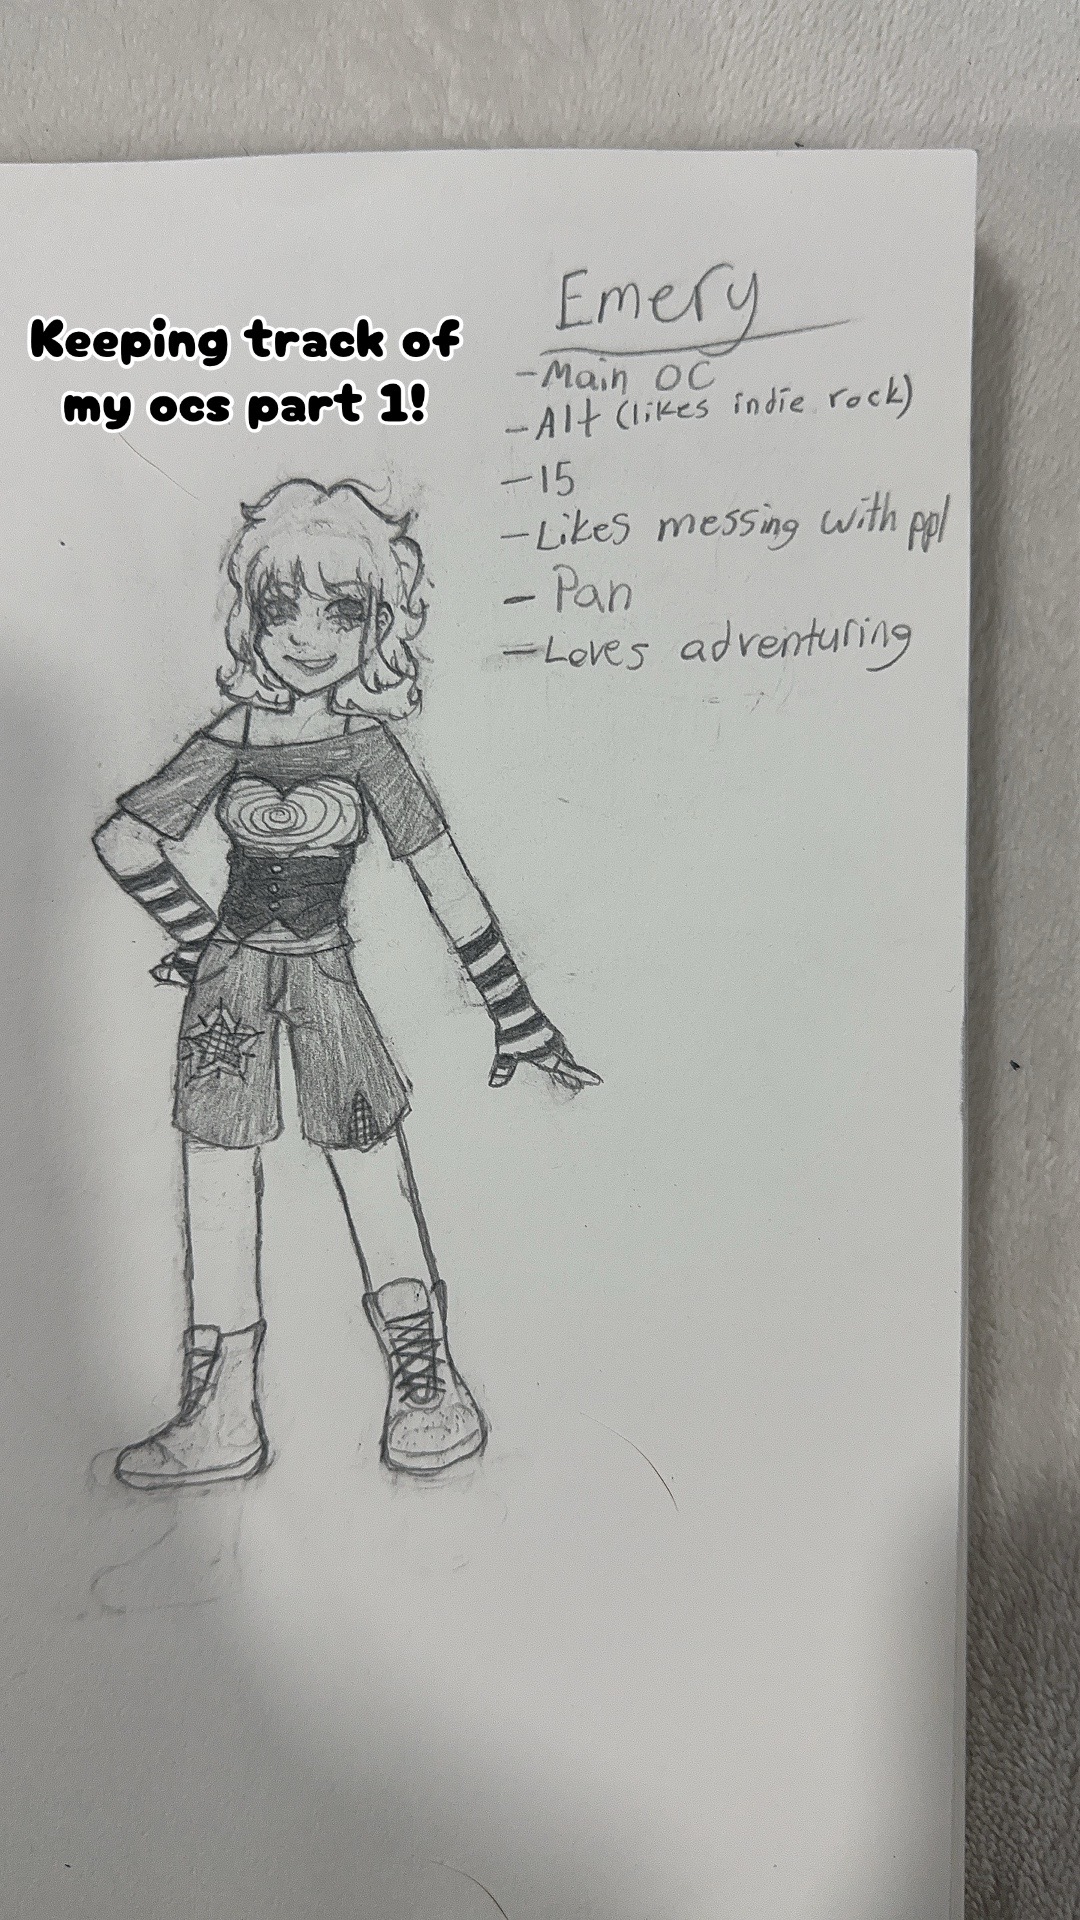 Keeping track of
my ocs part 1!
Emery
-Main OC
-Alt (likes indie rock)
-15
-Likes messing with ppl
-Pan
-Loves adventuring